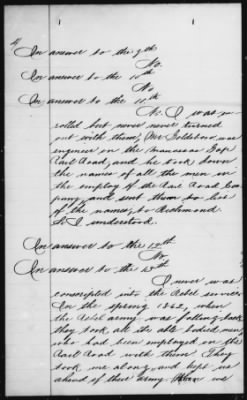 In answer to the 9th
No.
In answer to the 10th
No
In answer to the 11th
No. I was en-
rolled but never never turned
out with them, Mr Goldsboro, was
engineer on the Manassas Gap
Rail Road, and he took down
the names of all the men in
the employ of the Rail Road Com
pany, and sent them to
of the names, to Richmond
So I understood.
In answer to the 12th
No.
In answer to the 13th
I never was
conscripted into the Rebel service
In the spring 1862, when
the Rebel army was falling back
they took all the able bodied men,
who had been employed on the
Rail Road with them. They
took me along, and kept us
ahead of their army. When we